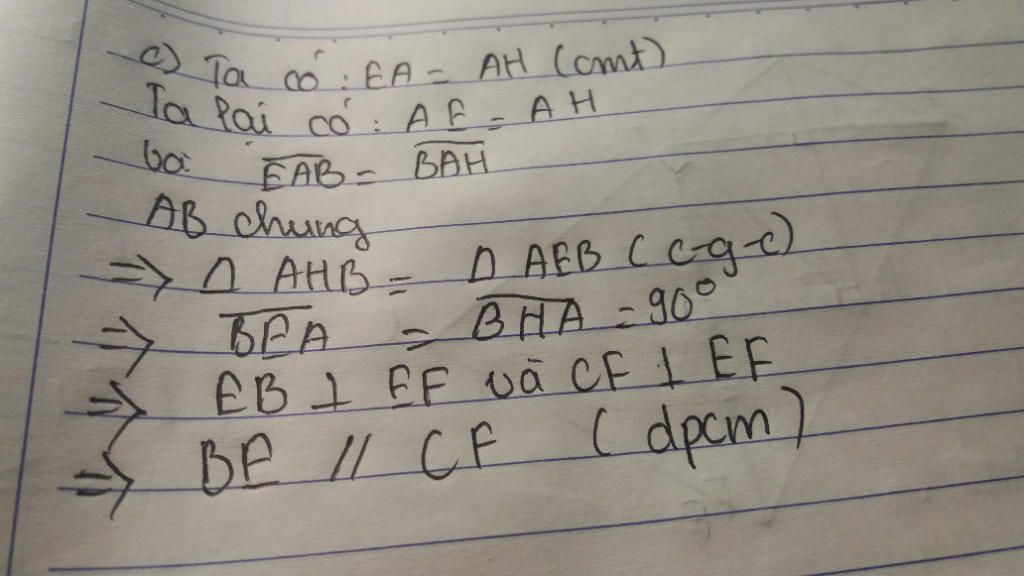 c) Ta có : EA = AH (cmt)
Ta lại có : AE = AH
và EAB = BAH
AB chung
=> Δ AHB = Δ AEB ( c-g-c)
=> BEA = BHA = 90°
=> EB ⊥ EF và CF ⊥ EF
=> BE // CF ( dpcm )